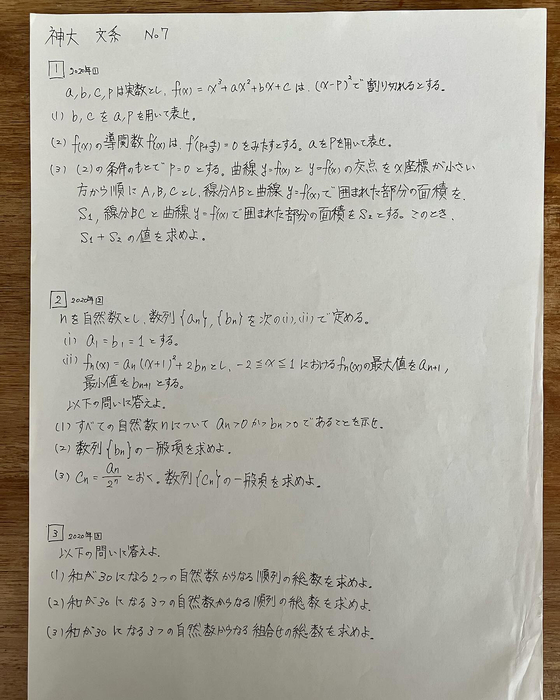 神大 文系 No7
1 2020年①
a, b, c, pは実数とし, f(x) = x³+ax²+bx+c は, (x-p)²で割り切れるとする。
(1) b, c を a, p を用いて表せ。
(2) f(x)の導関数 f'(x)は, f'(p+4/3)=0 をみたすとする。 aをpを用いて表せ。
(3) (2)の条件のもとで p=0 とする。曲線 y=f(x) と y=f'(x) の交点を x座標が小さい
方から順に A, B, C とし, 線分ABと曲線 y=f(x) で囲まれた部分の面積を,
S₁, 線分BC と曲線 y=f(x) で囲まれた部分の面積をS₂とする。このとき,
S₁+S₂ の値を求めよ。
2 2020年②
nを自然数とし, 数列{an}, {bn} を次の(i), (ii) で定める。
(i) a₁=b₁=1 とする。
(ii) fn(x) = an(x+1)²+2bn とし, -2≦x≦1 における fn(x) の最大値をan+1,
最小値を bn+1 とする。
以下の問いに答えよ。
(1) すべての自然数nについて an>0 かつ bn>0 であることを示せ。
(2) 数列{bn}の一般項を求めよ。
(3) Cn = an/2ⁿ とおく。数列{Cn}の一般項を求めよ。
3 2020年③
以下の問いに答えよ。
(1) 和が30になる2つの自然数からなる順列の総数を求めよ。
(2) 和が30 になる3つの自然数からなる順列の総数を求めよ。
(3) 和が30 になる3つの自然数からなる組合せの総数を求めよ。